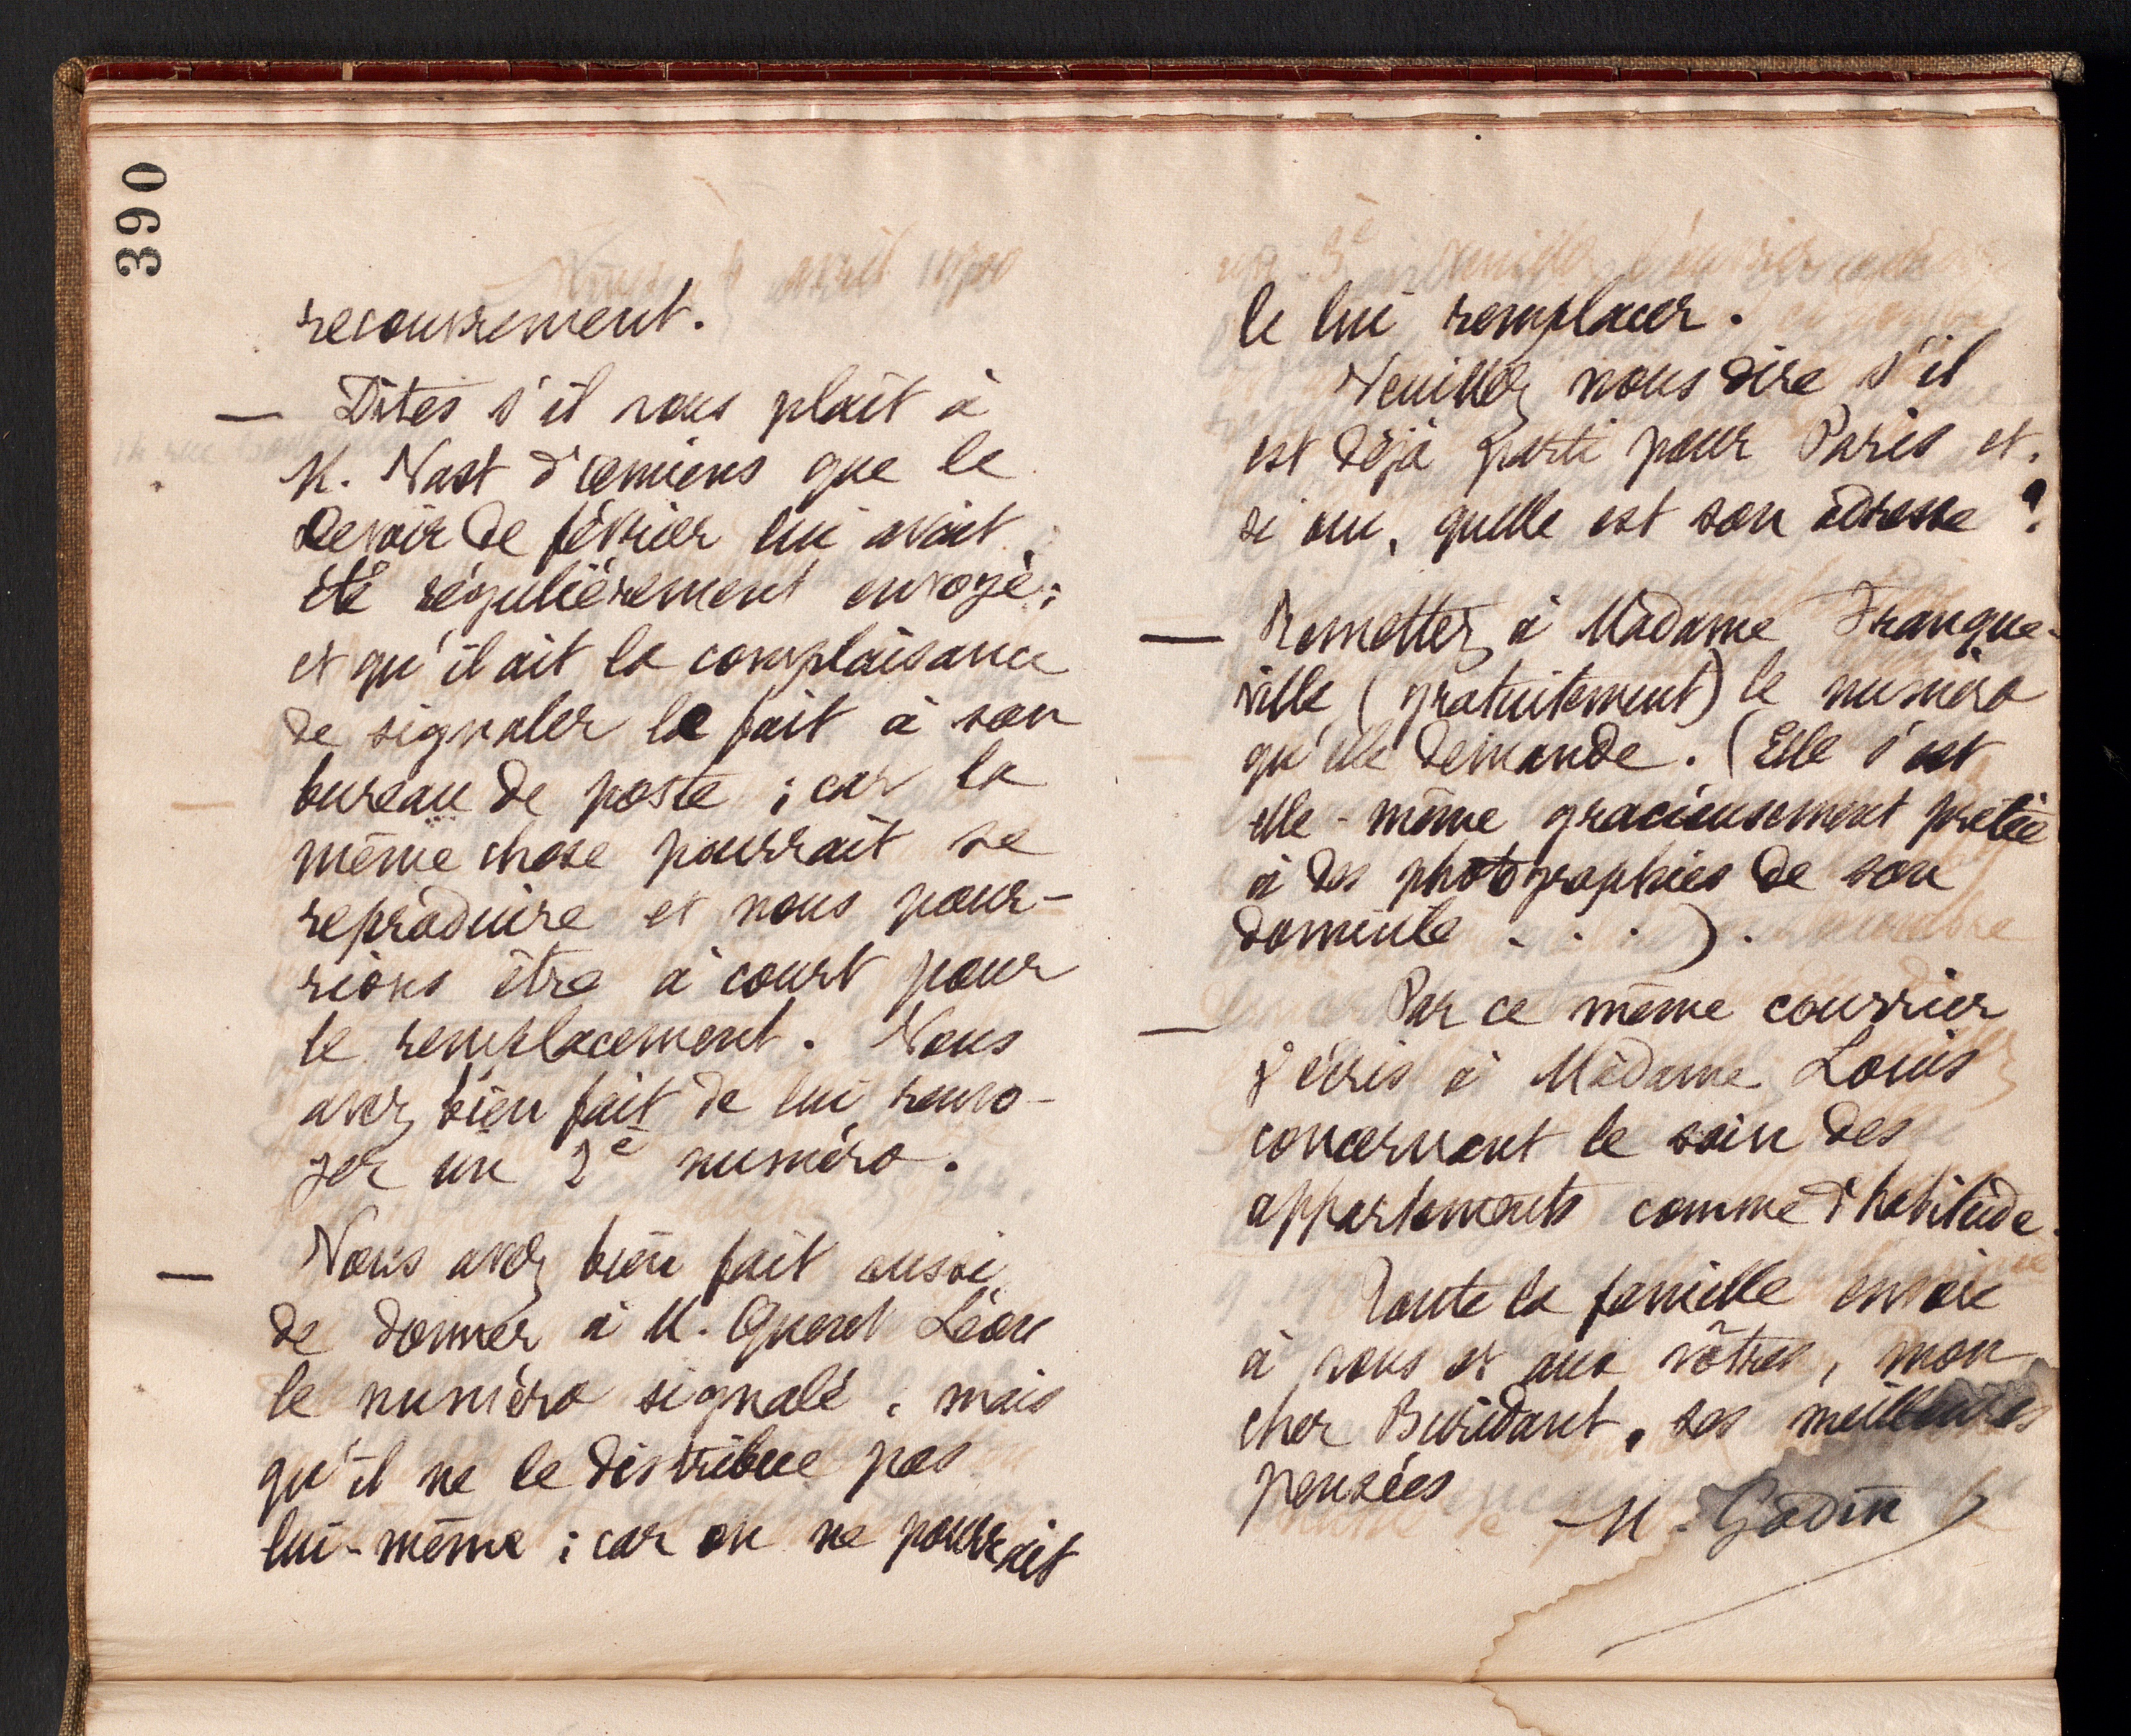 390
recouvrement.
— Dites s'il vous plaît à
M. Nast d'Amiens que le
Devoir de février lui avait
été régulièrement envoyé ;
et qu'il ait la complaisance
de signaler le fait à son
bureau de poste ; car la
même chose pourrait se
reproduire et nous pour-
rions être à court pour
le remplacement. Vous
avez bien fait de lui renvo-
yer un 2e numéro.
— Vous avez bien fait aussi
de donner à M. Quent Léon
le numéro signalé, mais
qu'il ne le distribue pas
lui-même ; car on ne pourrait
le lui remplacer.
Veuillez nous dire s'il
est déjà parti pour Paris et,
si oui, quelle est son adresse ?
— Remettez à Madame Franque-
ville (gratuitement) le numéro
qu'elle demande. (Elle s'est
elle-même gracieusement prêtée
à des photographies de son
domicile . . . ).
— Par ce même courrier
j'écris à Madame Louis
concernant le soin des
appartements comme d'habitude.
Toute la famille envoie
à vous et aux vôtres, mon
cher Buridant, ses meilleures
pensées
M. Godin